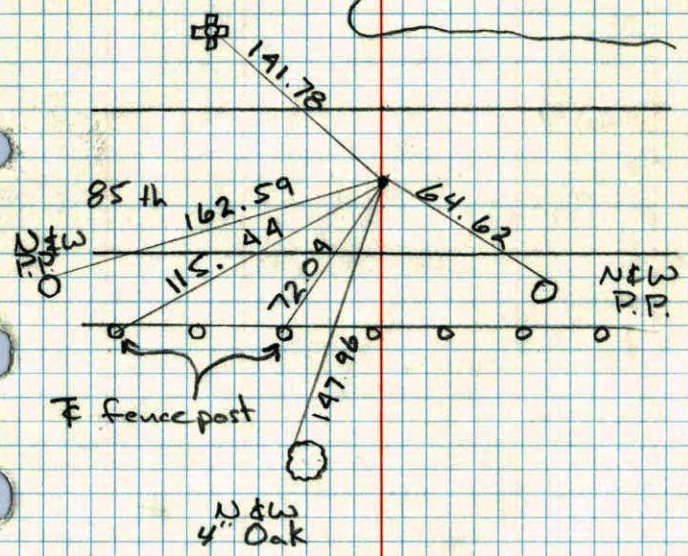 141.78
85 th
162.59
64.62
115.44
72.09
N&W
P.P.
N&W
P.P.
147.96
fence post
N&W
4" Oak